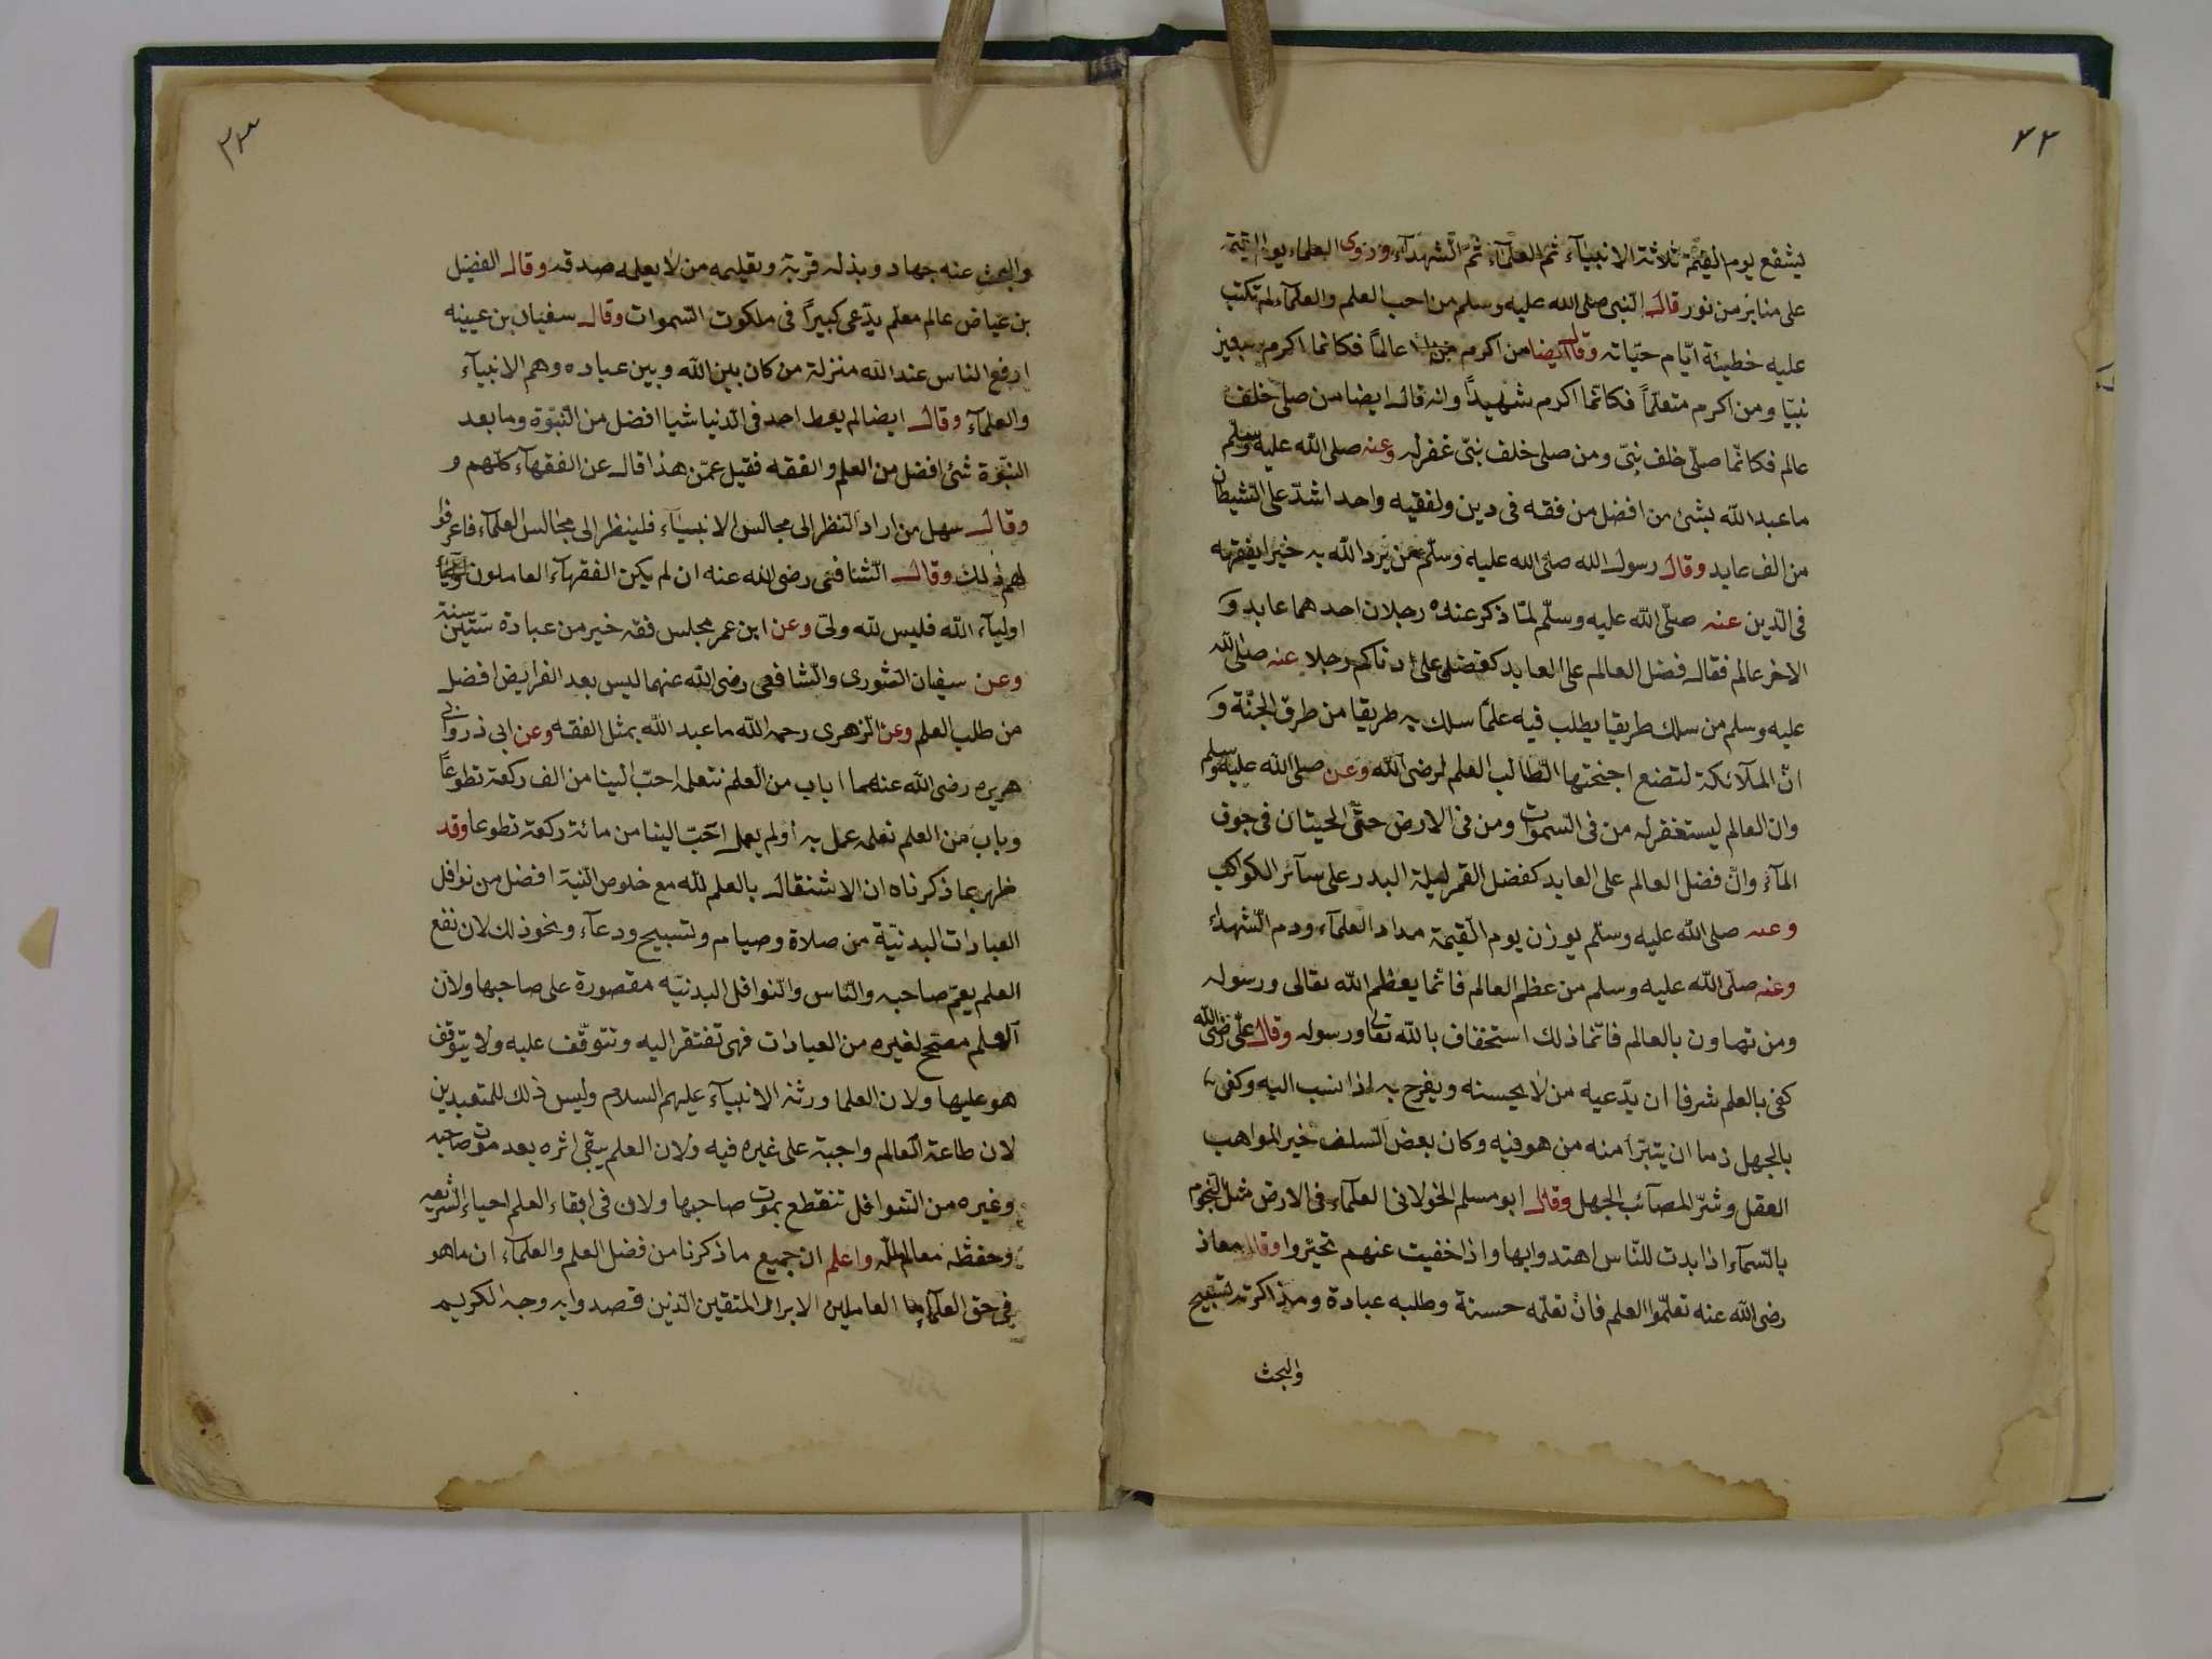 ٣٢
يشفع يوم القيمة ثلاثة الانبيآء ثمّ العلمآء ثمّ الشهدآء وروى العلماء يوم القيمة
على منابر من نور قال النبى صلى الله عليه وسلم من احب العلم والعلمآء لم تكتب
عليه خطيئة ايّام حيّاته وقال ايضا من اكرم عالماً فكانما اكرم سبعين
نبيّا ومن اكرم متعلّماً فكانّما اكرم شهيداً وانه قال ايضا من صلى خلف
عالم فكانّما صلّى خلف نبىّ ومن صلى خلف نبىّ غفر له وعنه صلى الله عليه وسلّم
ما عبد الله بشئ من افضل من فقه فى دين ولفقيه واحد اشدّ على الشيطان
من الف عابد وقال رسول الله صلى الله عليه وسلّم من يرد الله به خيرا يفقهه
فى الدّين عنه صلّى الله عليه وسلّم لمّا ذكر عنده رجلان احدهما عابد و
الاخر عالم فقال فضل العالم على العابد كفضلى على ادناكم رجلا عنه صلى الله
عليه وسلم من سلك طريقا يطلب فيه علمًا سلك به طريقا من طرق الجنّة و
انّ الملآئكة لتضع اجنحتها الطّالب العلم لرضى الله وعن صلى الله عليه وسلم
وان العالم ليستغفر له من فى السموات ومن فى الارض حتّى الحيتان فى جوف
المآء وانّ فضل العالم على العابد كفضل القمر ليلة البدر على سآئر الكواكب
وعنه صلى الله عليه وسلّم يوزن يوم القيمة مداد العلمآء ودم الشهداء
وعنه صلّى الله عليه وسلم من عظم العالم فانّما يعظم الله تعالى ورسوله
ومن تهاون بالعالم فانّما ذلك استخفاف بالله تعالى ورسوله وقال علىّ رضى الله
كفى بالعلم شرفا ان يدّعيه من لا يحسنه ويفرح به اذا نسب اليه وكفى
بالجهل ذما ان يتبرّأ منه من هو فيه وكان بعض السلف خير المواهب
العقل وشرّ المصآئب الجهل وقال ابو مسلم الخولانى العلمآء فى الارض مثل النجوم
بالسّمآء اذا بدت للنّاس اهتدوا بها واذا خفيت عنهم تحيّروا وقال معاذ
رضى الله عنه تعلّموا العلم فان تعلّمه حسنة وطلبه عبادة ومذاكرته تسبيح
والبحث
٣٣
والبحث عنه جهاد وبذله قربة وتعليمه من لا يعلمه صدقه وقال الفضيل
بن عياض عالم معلم يدّعى كبيراً فى ملكوت السموات وقال سفيان بن عيينه
ارفع الناس عند الله منزلة من كان بين الله وبين عباده وهم الانبيآء
والعلمآء وقال ايضا لم يعط احد فى الدّنيا شيا افضل من النبّوة وما بعد
النبّوة شئ افضل من العلم والفقه فقيل عمّن هذا قال عن الفقهآء كلّهم و
وقال سهل من اراد النظر الى مجالس الانبيآء فلينظر الى مجالس العلمآء فاعرفوا
لهم ذلك وقال الشافعى رضى الله عنه ان لم يكن الفقهآء العاملون
اوليآء الله فليس لله ولىّ وعن ابن عمر مجلس فقه خير من عبادة ستّين سنة
وعن سفيان الثورى والشافعى رضى الله عنهما ليس بعد الفرايض افضل
من طلب العلم وعن الزهرى رحمه الله ما عبد الله بمثل الفقه وعن ابى ذر وابى
هريره رضى الله عنهما باب من العلم نتعلمه احبّ الينا من الف ركعة تطوعاً
وباب من العلم نعلمه عمل به او لم يعمل احبّ الينا من مائة ركعة تطوعا وقد
ظهر بما ذكرناه ان الاشتغال بالعلم لله مع خلوص النيّة افضل من نوافل
العبادات البدنيّة من صلاة وصيام وتسبيح ودعآء ونحو ذلك لان نفع
العلم يعمّ صاحبه والنّاس والنوافل البدنيّه مقصورة على صاحبها ولان
العلم مصحّح لغيره من العبادات فهى تفتقر اليه وتتوقّف عليه ولا يتوقف
هو عليها ولان العلما ورثه الانبيآء عليهم السلام وليس ذلك للمتعبدين
لان طاعة العالم واجبة على غيره فيه ولان العلم يبقى اثره بعد موت صاحبه
وغيره من النوافل تنقطع بموت صاحبها ولان فى ابقاء العلم احياء الشريعه
وحفظه معالم الملّه واعلم ان جميع ما ذكرنا من فضل العلم والعلمآء ان ما هو
فى حق العلمآء العاملين الابرار المتقين الذين قصدوا به وجه الكريم